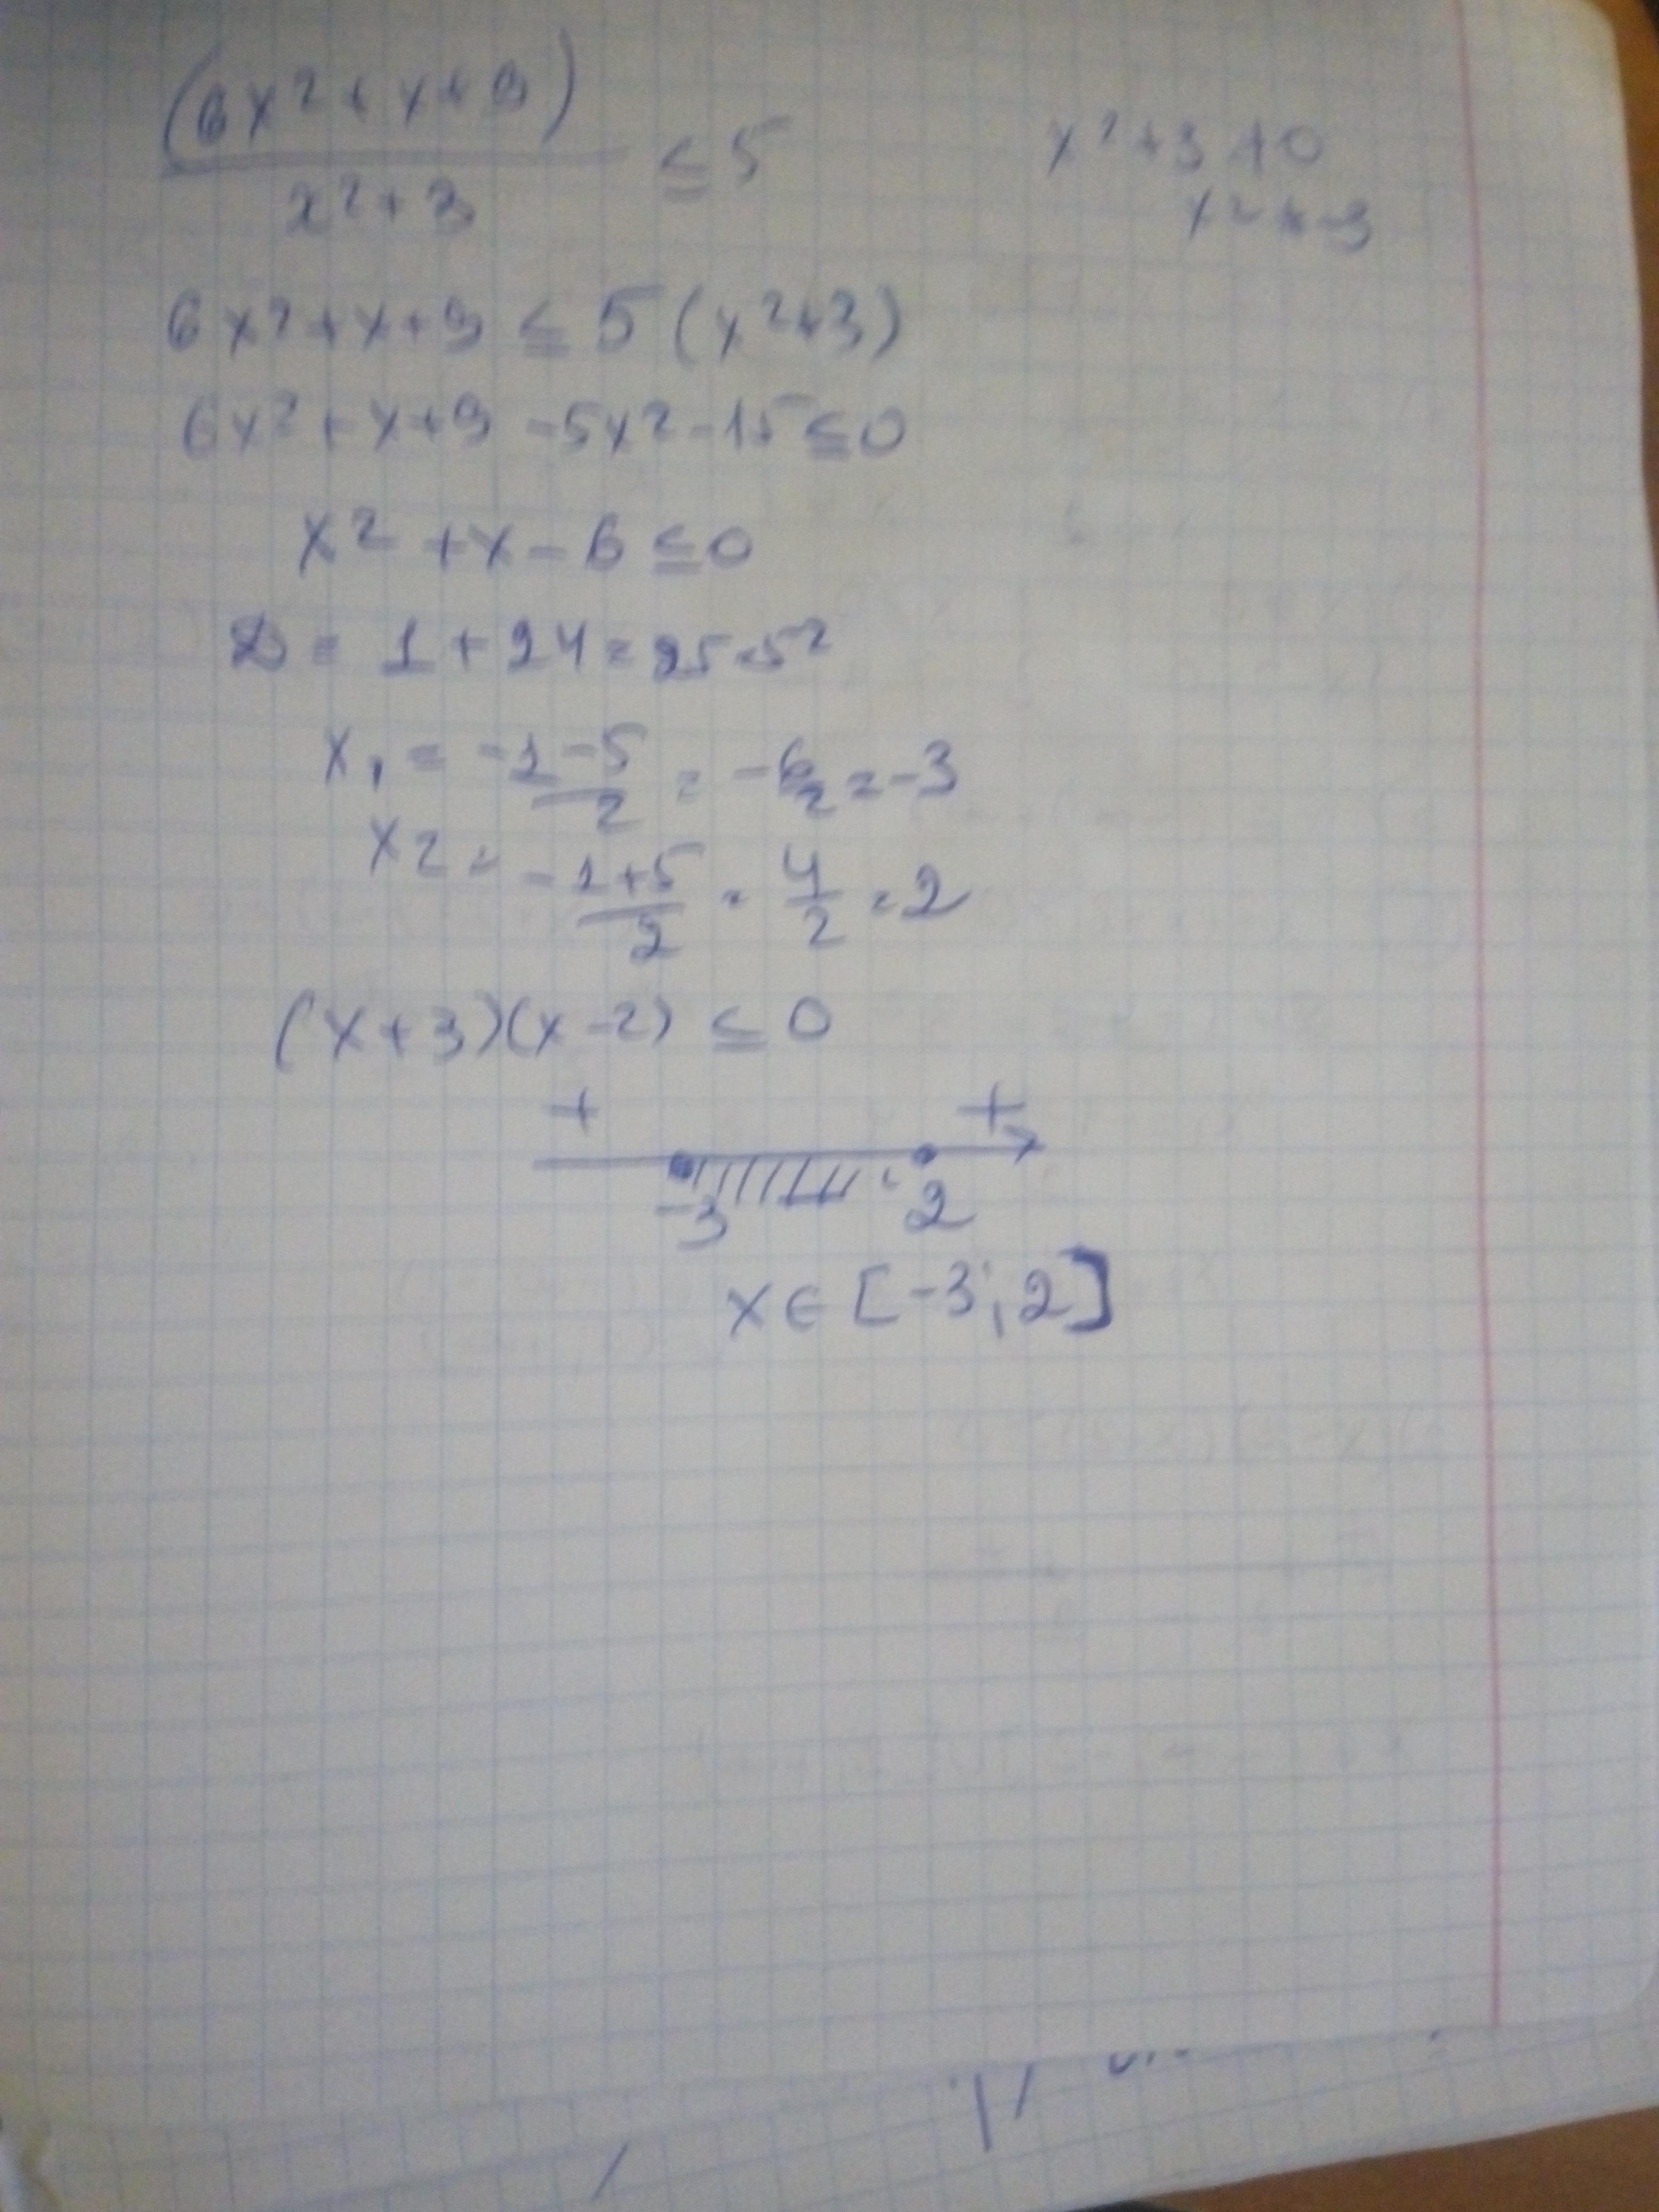 (6x²+x+9)
x²+3 ≤5
x²+3≠0
x²≠-3
6x²+x+9 ≤ 5(x²+3)
6x²+x+9-5x²-15≤0
x²+x-6≤0
D = 1+24=25=5²
x₁ = -1-5/2 = -6/2 = -3
x2 = -1+5/2 = 4/2 = 2
(x+3)(x-2) ≤ 0
+ +
-3 2
x∈[-3;2]